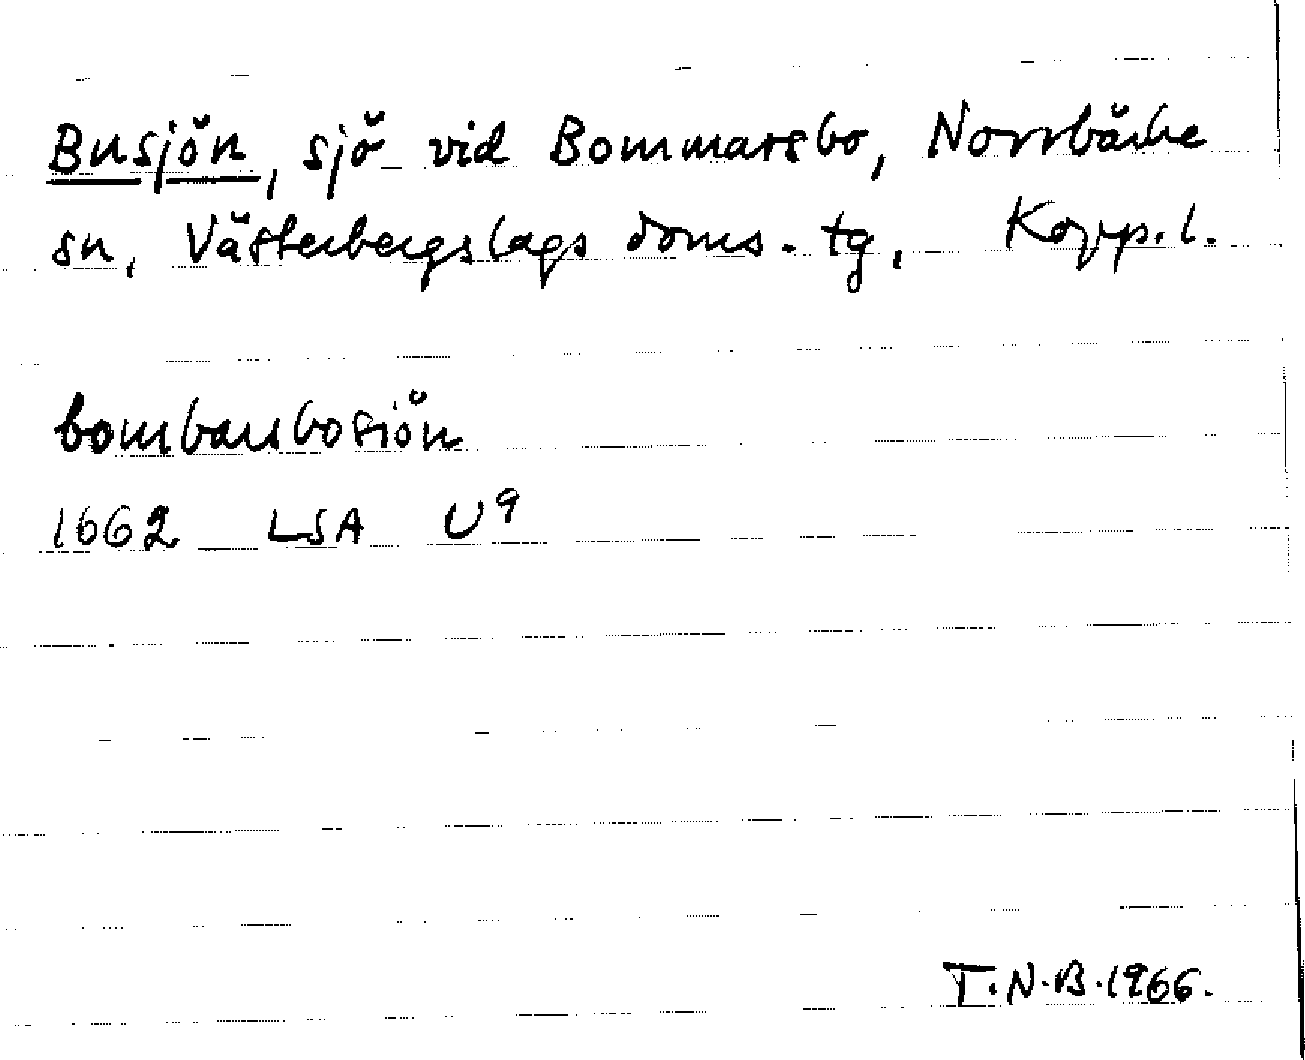 Busjön, sjö vid Bommarsbo, Norrbärke
sn, Västerbergslags doms. tg, Kopp.l.
bombarsbosiön
1662 LSA U9
T.N.B.1966.